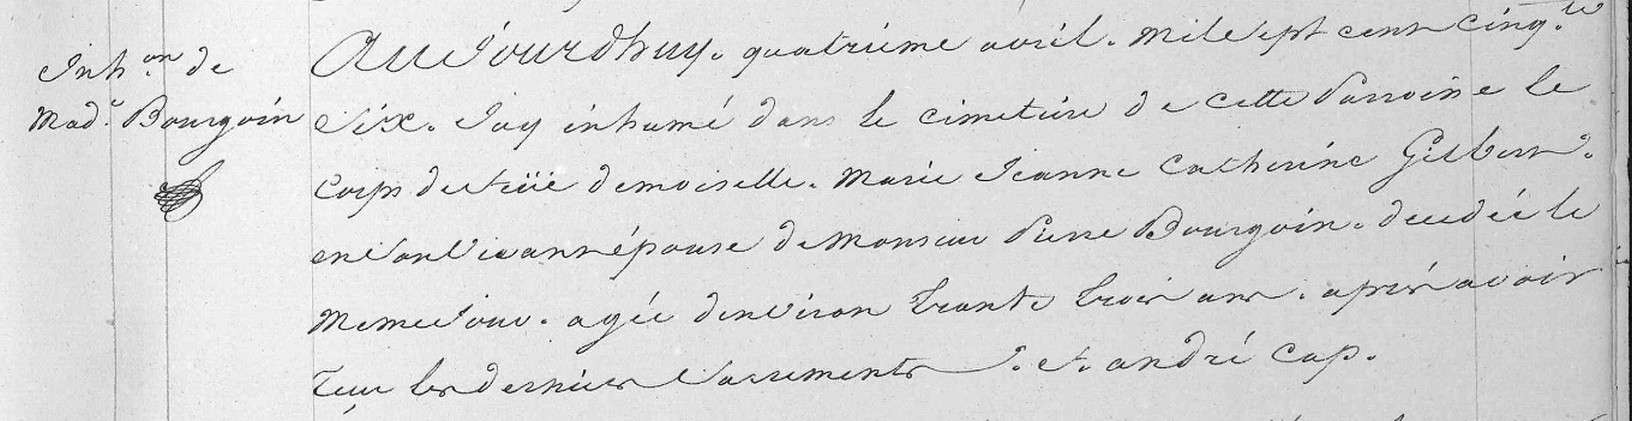 Inh.on de
Mad.e Bourgoin
Aujourdhuy. quatriéme avril. mil sept cent cinq.te
Six. J'ay inhumé dans le cimetiere de cette Parroisse le
Corps de feüe demoiselle. Marie Jeanne Catherine Gilbert.
en Son Vivant épouse de Monsieur Pierre Bourgoin. decedée le
Meme Jour. agée denviron trante trois ans. aprés avoir
reçu les derniers Sacrements. et. andré Cap.